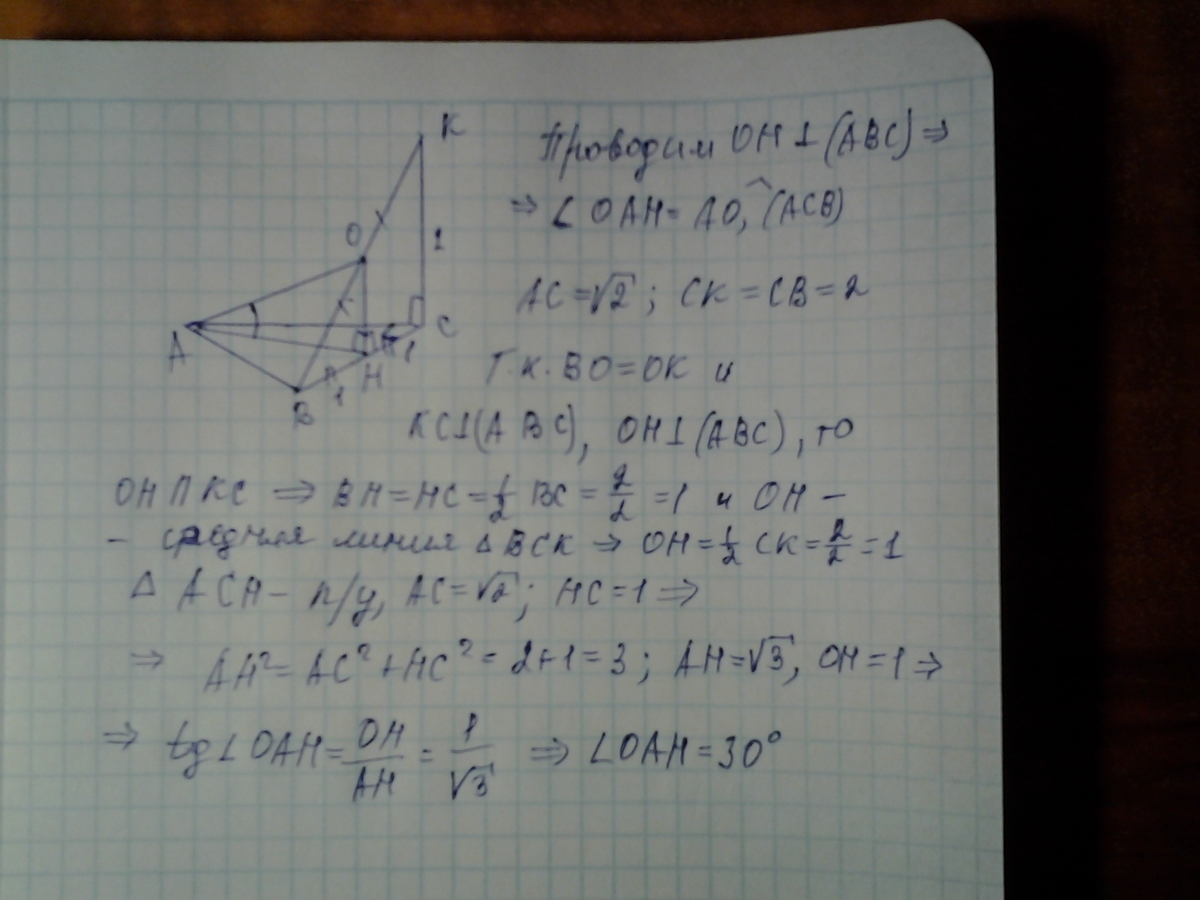 K
O
1
A
C
1
H
1
B
Проводим OH ⊥ (ABC) ⇒
⇒ ∠ OAH = AO, ^ (ACB)
AC = √2 ; CK = CB = 2
Т.к. BO = OK и
KC ⊥ (ABC), OH ⊥ (ABC), то
OH П KC ⇒ BH = HC = 1/2 BC = 2/2 = 1 и OH –
– средняя линия △ BCK ⇒ OH = 1/2 CK = 2/2 = 1
△ ACH – п/у, AC = √2 ; HC = 1 ⇒
⇒ AH² = AC² + HC² = 2+1 = 3 ; AH = √3, OH = 1 ⇒
⇒ tg ∠ OAH = OH/AH = 1/√3 ⇒ ∠OAH = 30°